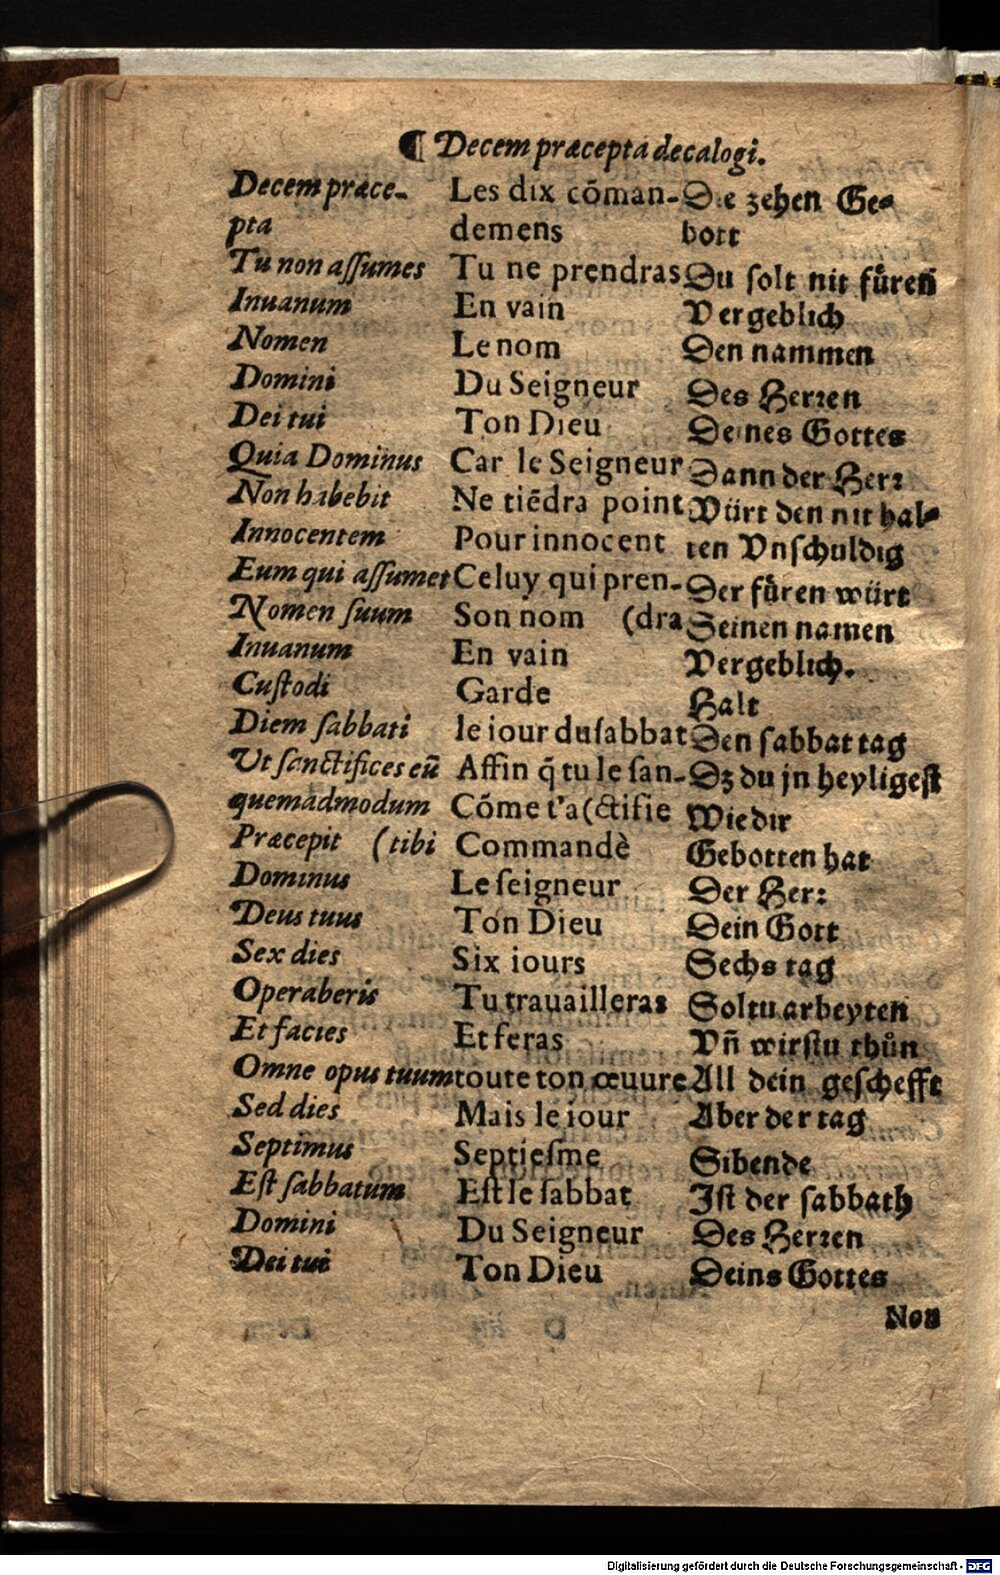 ¶ Decem præcepta decalogi.
Decem præce- Les dix cõman- Die zehen Ge-
pta demens bott
Tu non assumes Tu ne prendras Du solt nit fůren
Inuanum En vain Vergeblich
Nomen Le nom Den nammen
Domini Du Seigneur Des Herren
Dei tui Ton Dieu Deines Gottes
Quia Dominus Car le Seigneur Dann der Herr
Non habebit Ne tiẽdra point Würt den nit hal-
Innocentem Pour innocent ten Vnschuldig
Eum qui assumet Celuy qui pren- Der fůren würt
Nomen suum Son nom (dra Seinen namen
Inuanum En vain Vergeblich.
Custodi Garde Halt
Diem sabbati le iour du sabbat Den sabbat tag
Ut sanctifices eũ Affin q̃ tu le san- Dz du jn heyligest
quemadmodum Cõme t'a (ctifie Wie dir
Præcepit (tibi Commandè Gebotten hat
Dominus Le seigneur Der Herr
Deus tuus Ton Dieu Dein Gott
Sex dies Six iours Sechs tag
Operaberis Tu trauailleras Soltu arbeyten
Et facies Et feras Vñ wirstu thůn
Omne opus tuum toute ton œuure All dein geschefft
Sed dies Mais le iour Aber der tag
Septimus Septiesme Sibende
Est sabbatum Est le sabbat Ist der sabbath
Domini Du Seigneur Des Herren
Dei tui Ton Dieu Deins Gottes
Non
Digitalisierung gefördert durch die Deutsche Forschungsgemeinschaft - DFG